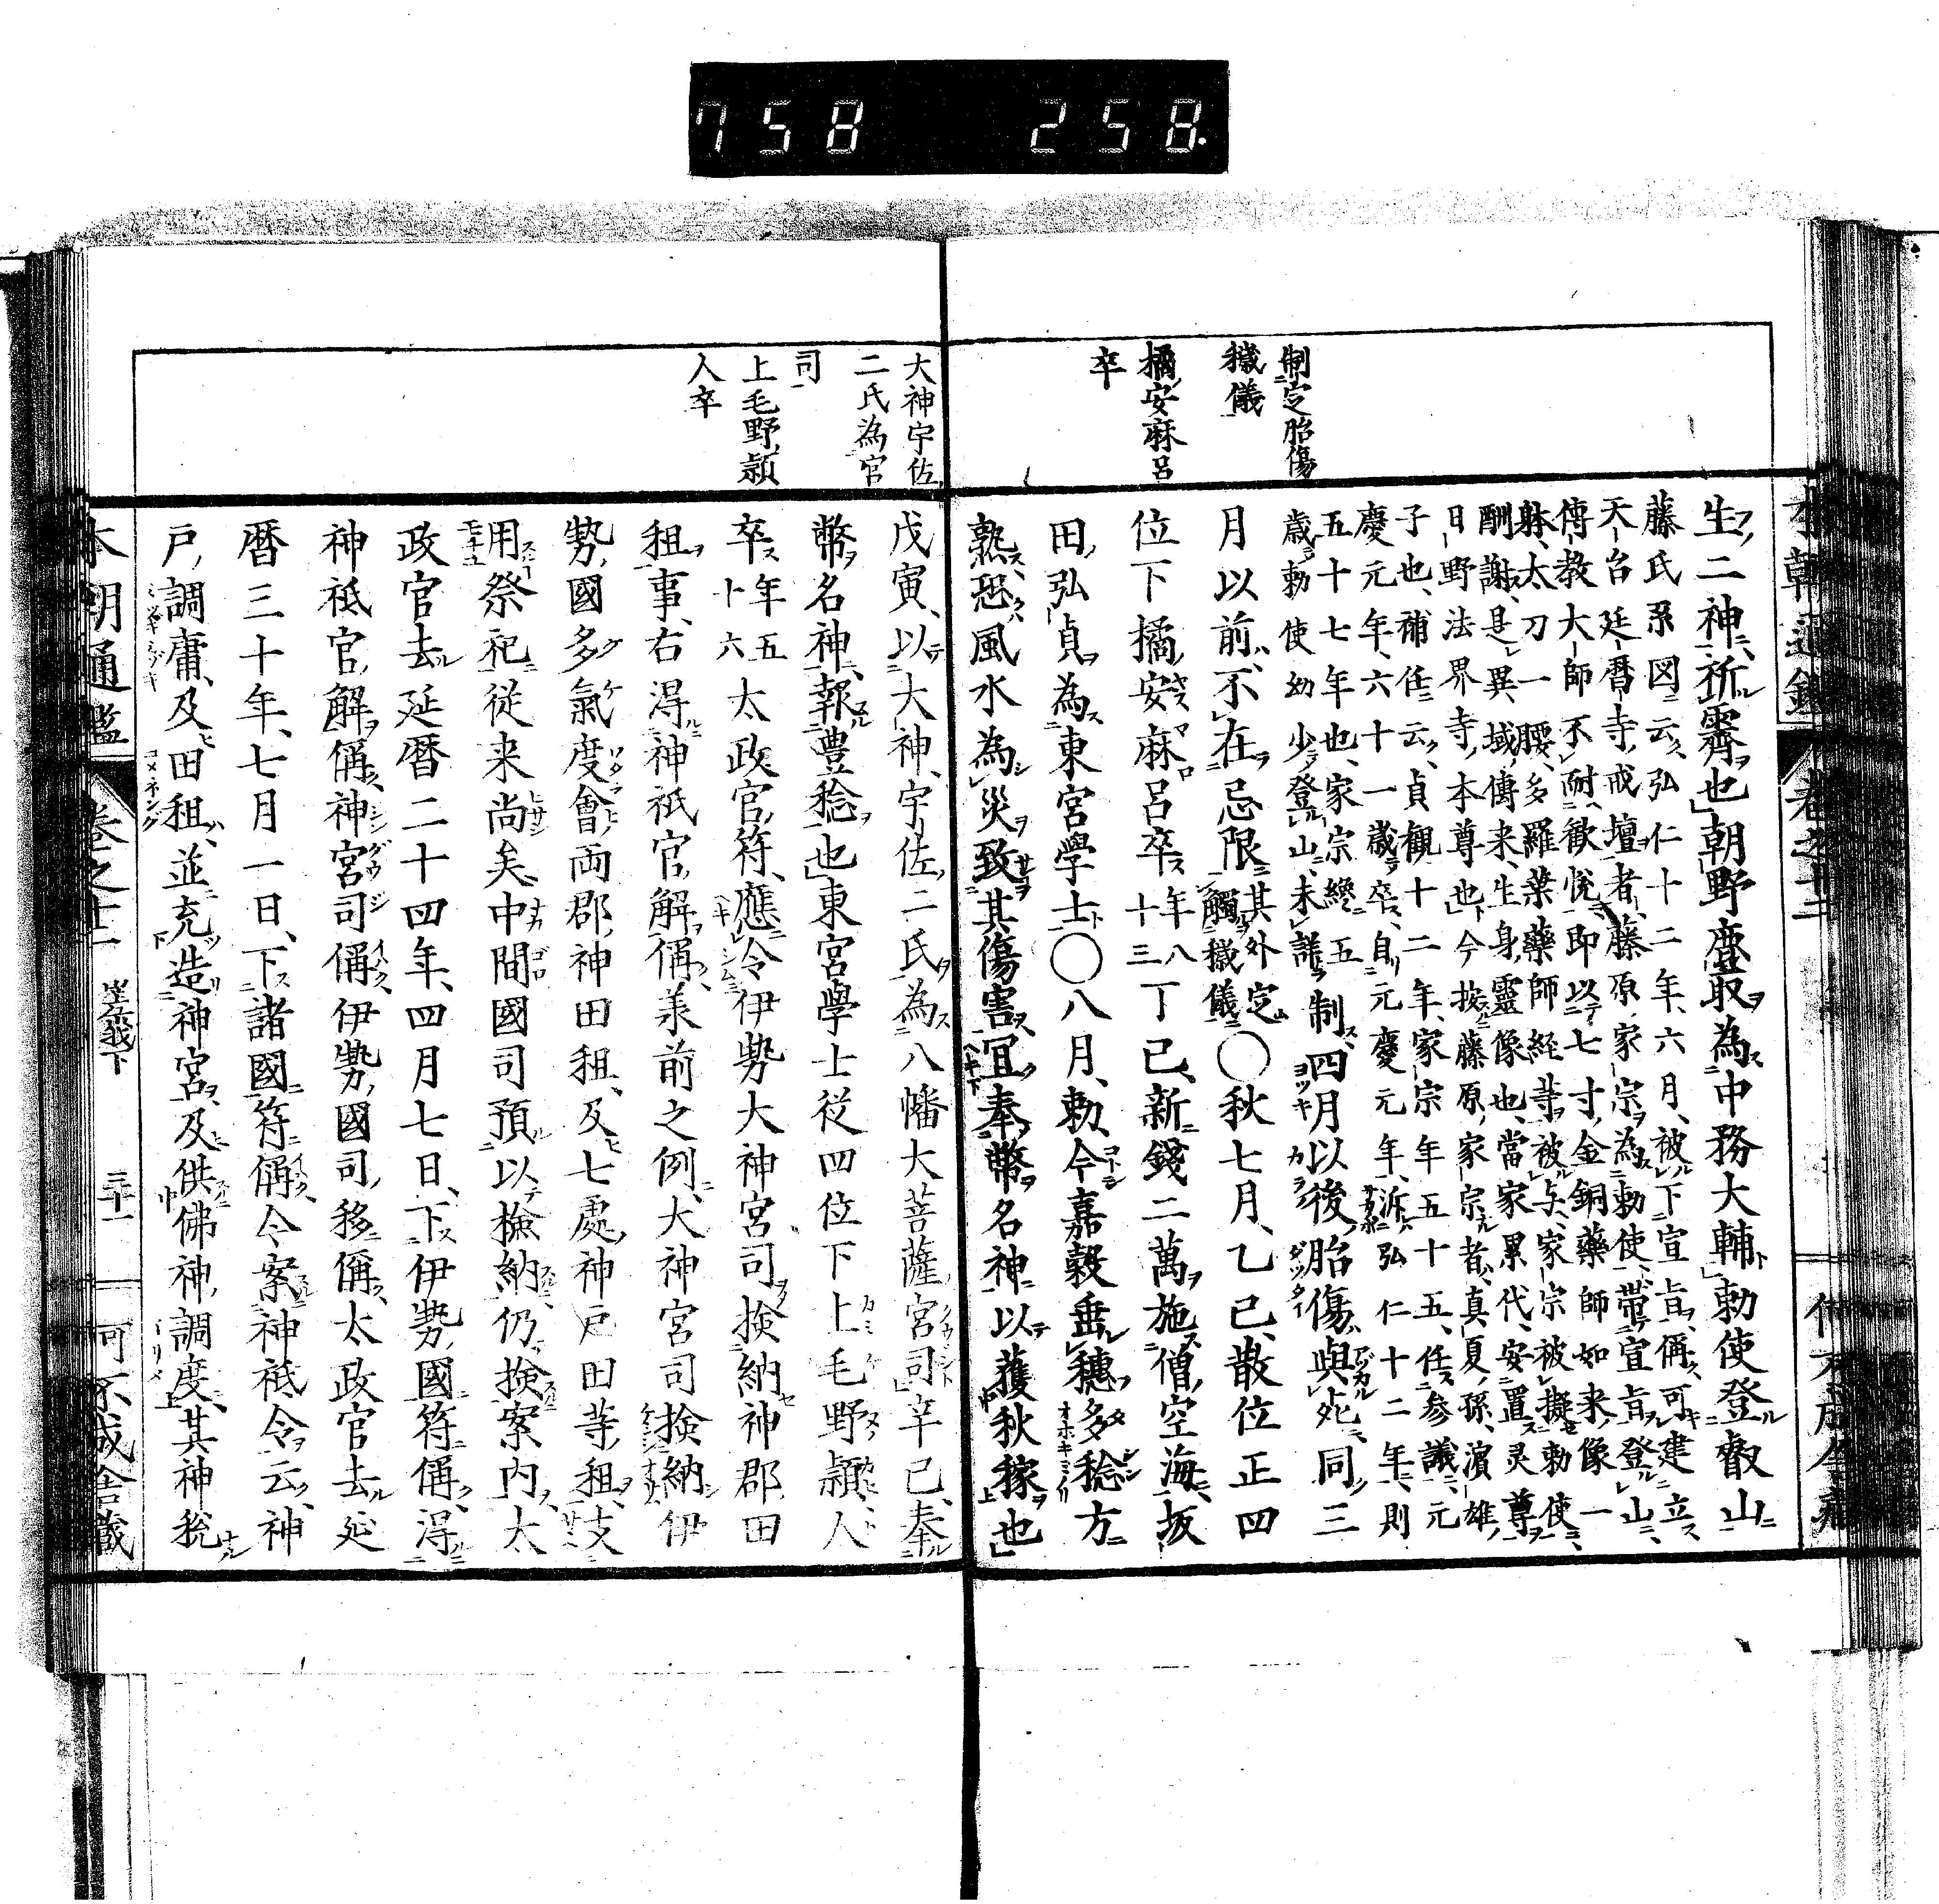 758 258.
制定胎傷
穢儀
橘安麻呂
卒
生二神祈霽也朝野鹿取為中務大輔勅使登叡山
藤氏系図云弘仁十二年六月被下宣旨偁可建立
天台延暦寺戒壇者藤原家宗為勅使帯宣旨登山
傳教大師不耐歓悦即以七寸金銅藥師如来像一
躰太刀一腰多羅葉藥師経等被与家宗被擬勅使
酬謝是異域傳来生身靈像也當家累代安置灵尊
日野法界寺本尊也今按藤原家宗者真夏孫濱雄
子也補任云貞観十二年家宗年五十五任参議元
慶元年六十一歳卒自元慶元年泝弘仁十二年則
五十七年也家宗纔五
歳勅使幼少登山未詳制四月以後胎傷與死同三
月以前不在忌限其外定觸穢儀○秋七月乙已散位正四
位下橘安麻呂卒年八十三丁已新錢二萬施僧空海坂
田弘貞為東宮學士○八月勅今嘉穀垂穂多稔方
熟恐風水為災致其傷害宜奉幣名神以護秋稼也
大神宇佐
二氏為宮
司
上毛野頴
人卒
戊寅以大神宇佐二氏為八幡大菩薩宮司辛已奉
幣名神報豊稔也東宮學士従四位下上毛野頴人
卒年五十六太政官符應令伊勢大神宮司捡納神郡田
租事右得神祇官解偁承前之例大神宮司捡納伊
勢國多氣度會両郡神田租及七處神戸田等租支
用祭祀従来尚矣中間國司預以捡納仍捡案内太
政官去延暦二十四年四月七日下伊勢國符偁得
神祇官解偁神宮司偁伊勢國司移偁太政官去延
暦三十年七月一日下諸國符偁今案神祇令云神
戸調庸及田租並充造神宮及供佛神調度其神税
本朝通鑑 卷之十二 嵯峨下 三十一 可不成舎藏